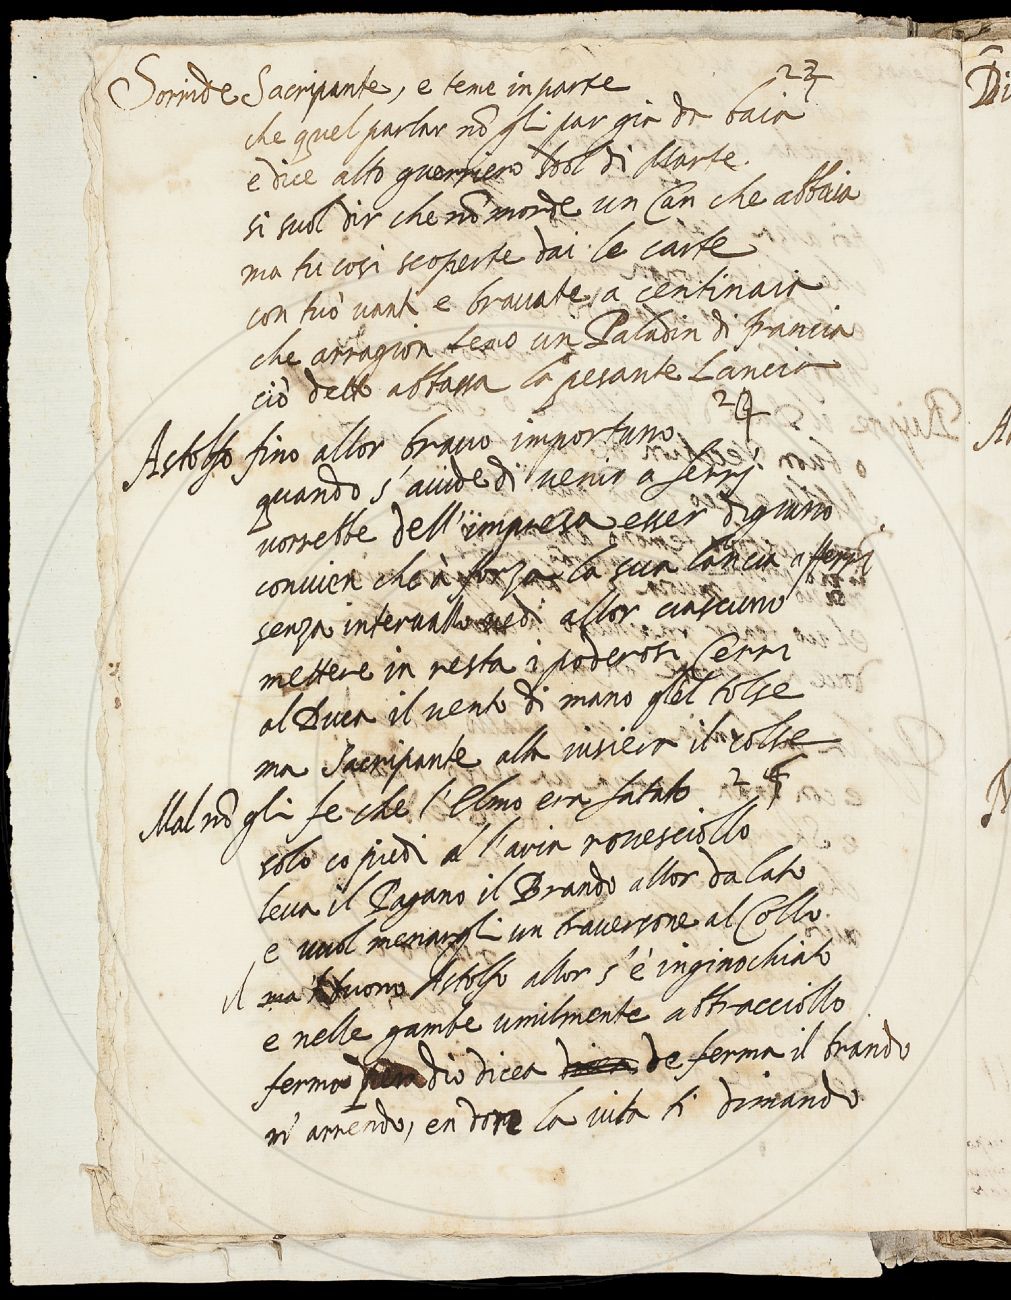 23
Sorride Sacripante, e teme in parte
che quel parlar nõ gli par gia da baia
e dice alto guerriero Idol di Marte.
si suol dir che nõ morde un Can che abbaia
ma tu cosi scoperte dai le carte
con tuó uanti e brauate a centinaia
che arragion temo un Paladin di francia
ciò detto abbassa la pesante Lancia
24
Astolfo fino allor brauo importuno
quando s'auide di uenir a ferri
uorrebbe dell'impresa esser digiuno
conuien che à forza la sua lancia afferri
senza interuallo uedi allor ciascuno
mettere in resta i poderosi Cerri
al Duca il uento di mano gliel tolse
ma Sacripante alla uisiera il colse
25
Mal nõ gli fe che l'Elmo era fatato
solo co piedi a l'aria rouesciollo
leua il Pagano il Brando allor da lato
e uuol menargli un trauersone al Collo.
il buono Astolfo allor s'è inginochiato
e nelle gambe umilmente abbracciollo
fermo dio dicea de ferma il brando
m'arrendo, en dono la uita ti dimando
Di